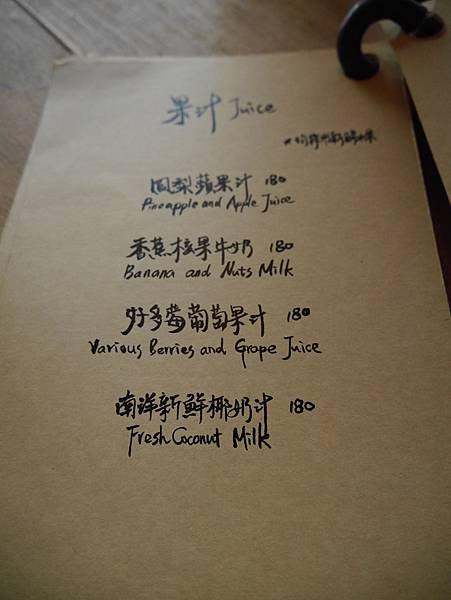 果汁 Juice
鳳梨蘋果汁 180
Pineapple and Apple Juice
香蕉核果牛奶 180
Banana and Nuts Milk
好多莓葡萄果汁 180
Various Berries and Grape Juice
南洋新鮮椰奶汁 180
Fresh Coconut Milk